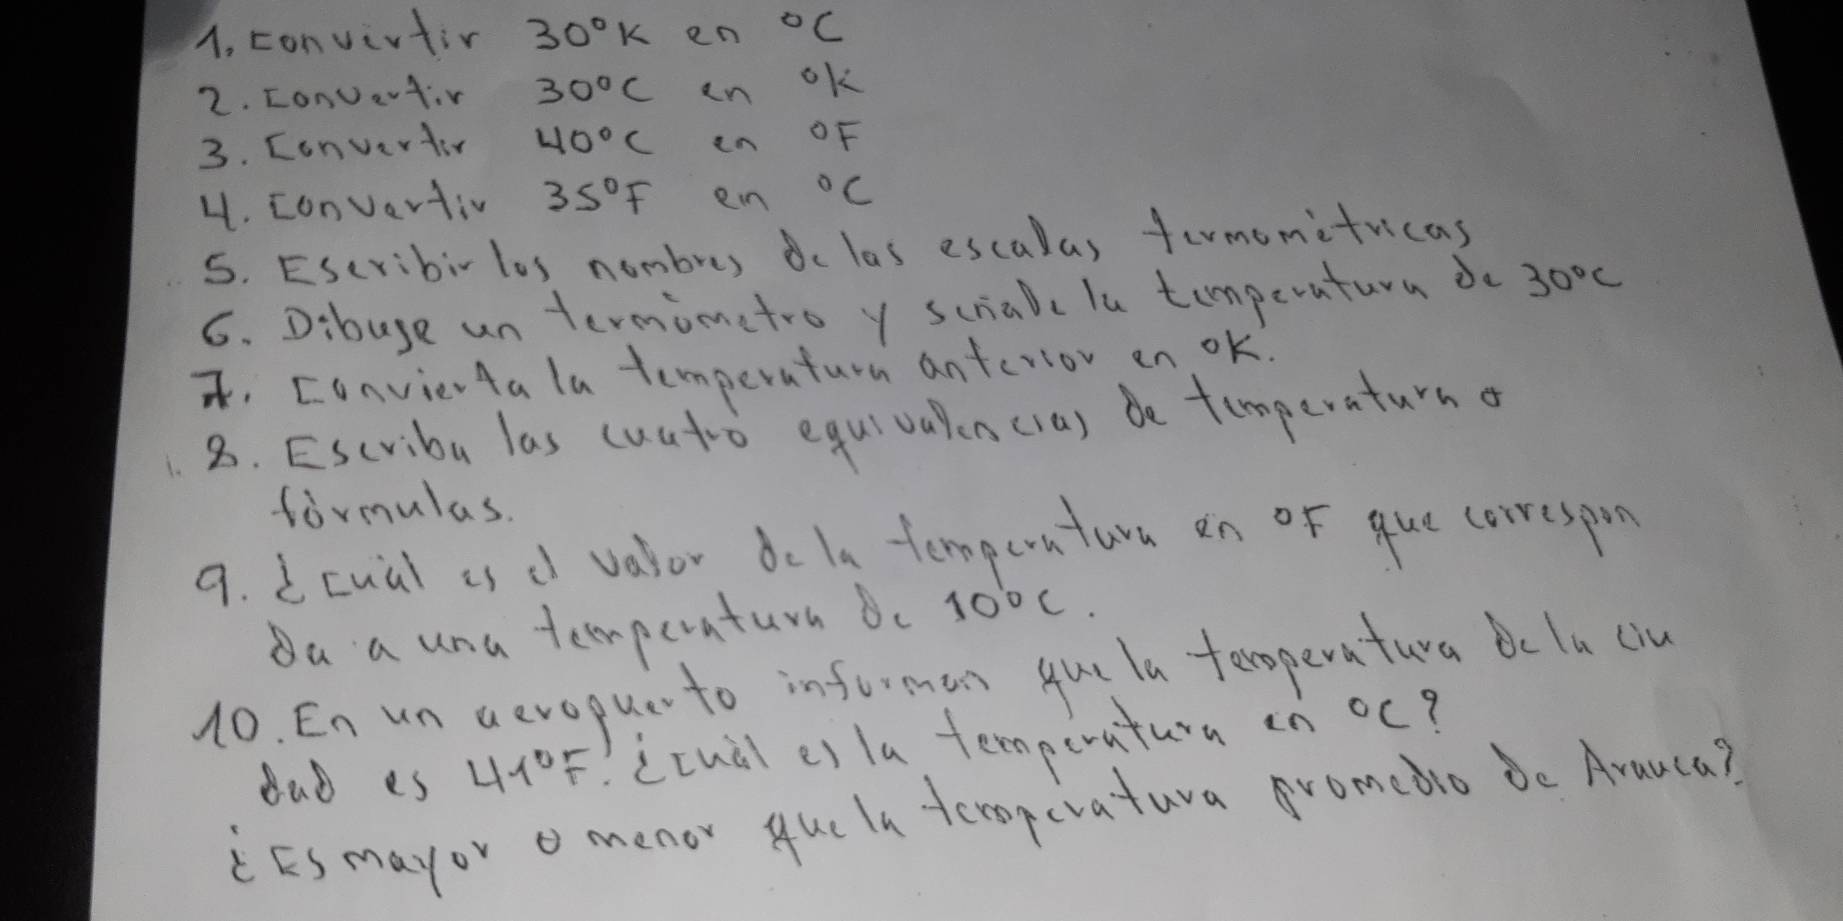 1. convertir 30°K en °C
2. Convertir 30°C en °K
3. Convertir 40°C en °F
4. Convertir 35°F en °C
5. Escribir los nombres de las escalas termométricas
6. Dibuje un termómetro y señale la temperatura de 30°C
7. Convierta la temperatura anterior en °K.
8. Escriba las cuatro equivalencias de temperatura o
fórmulas.
9. ¿Cuál es el valor de la temperatura en °F que correspon
da a una temperatura de 10°C.
10. En un aeropuerto informan que la temperatura de la ciu
dad es 41°F. ¿Cuál es la temperatura en °C?
¿Es mayor o menor que la temperatura promedio de Arauca?